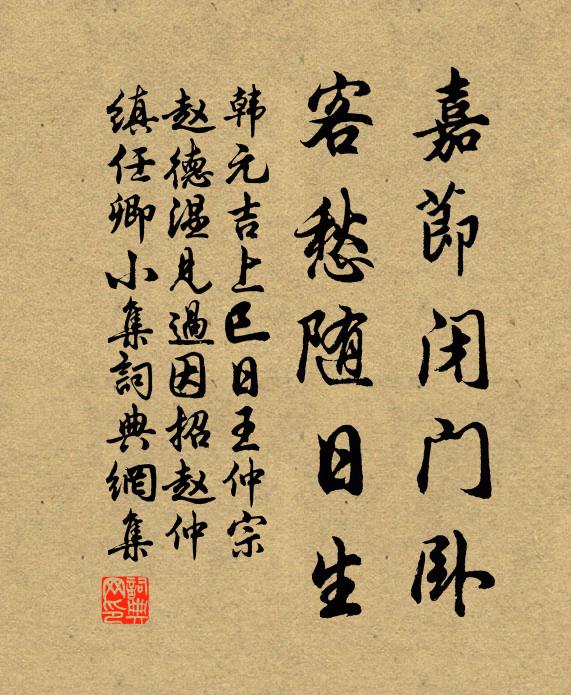 嘉節闭门卧
客愁随日生
韩元吉上巳日王仲宗
赵德温見過因招赵仲
缜任卿小集詞典網集
詞典
网印